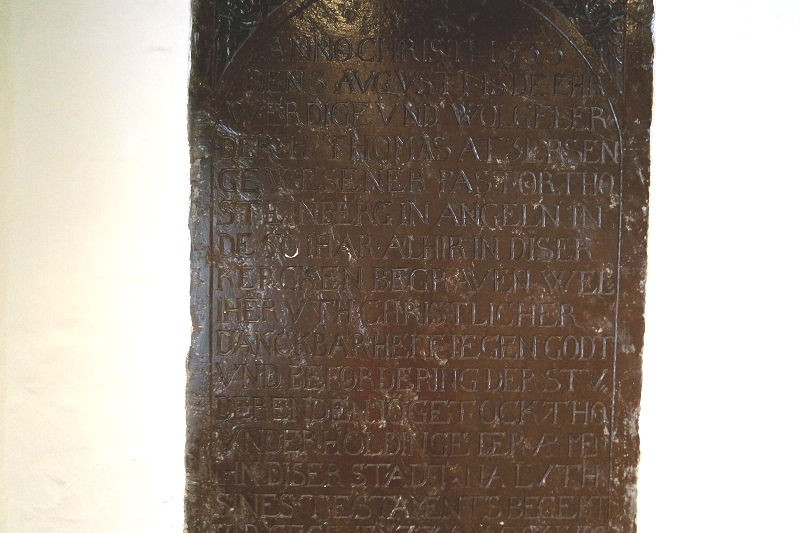 ANNO CHRISTI
AVGVSTI IS DE EHR
ERDIGE VND WOLGELER
DER H THOMAS ATZERSEN
GEWESENER PASTOR THO
STERNBERG IN ANGELN IN
DE 60 IHAR ALHIR IN DISER
KERCKEN BEGRAVEN WEL
HER VTH CHRISTLICHER
DANCKBARHEIT IEGEN GODT
VND BEFORDERING DER STV
DERENDEN IOGET OCK THO
VNDERHOLDINGE DER ARMEN
IN DISER STADT NA LVTH
SINES TESTAMENTS BEGERT